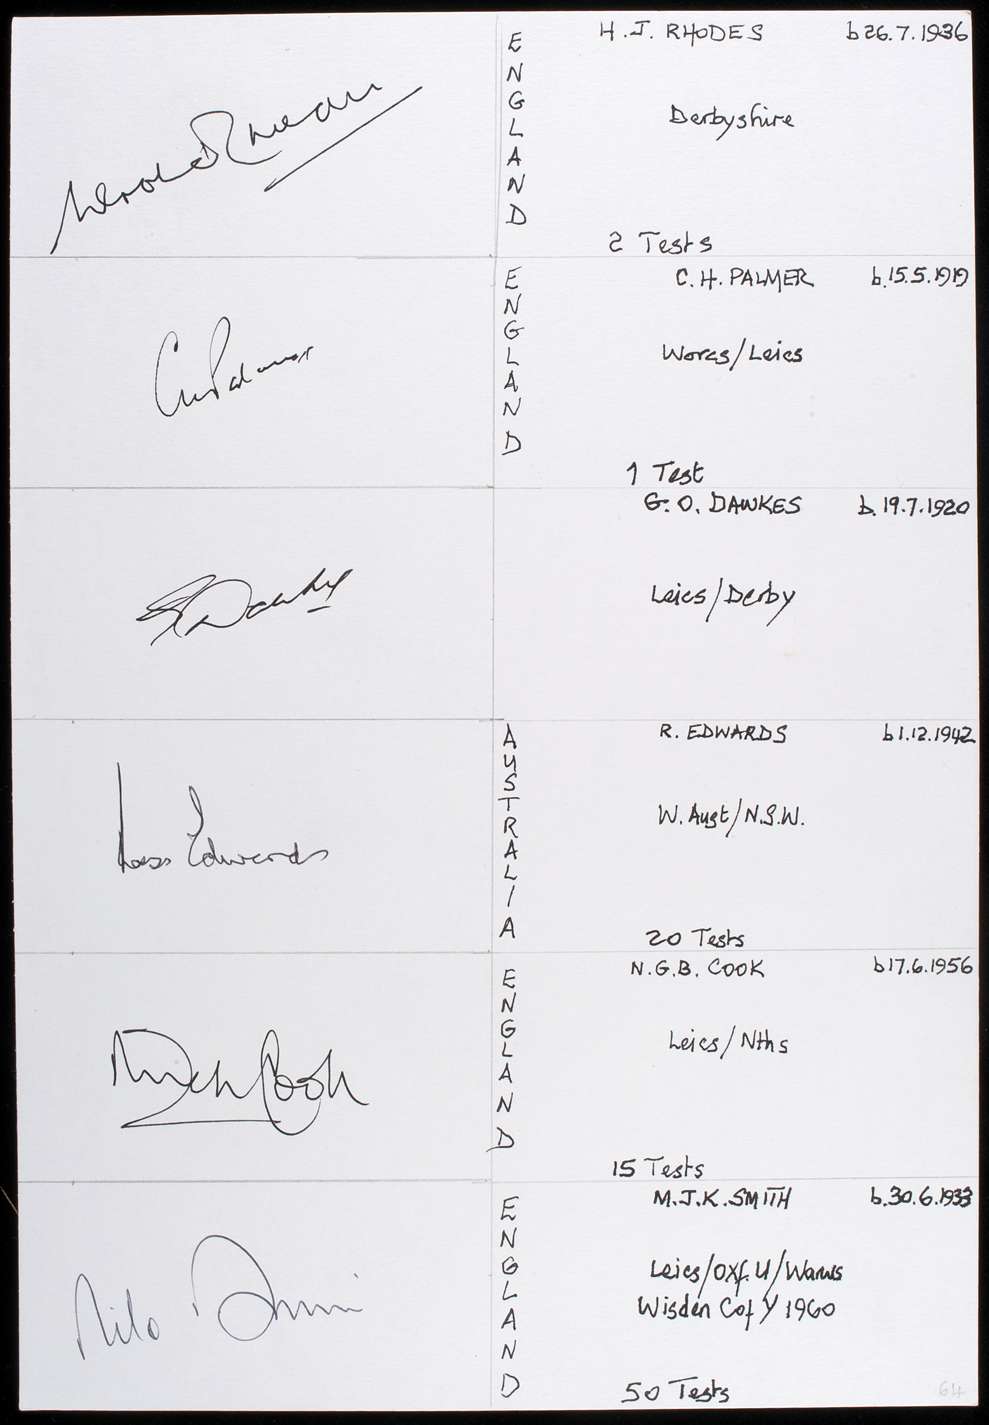 ENGLAND
H.J. RHODES b26.7.1936
Derbyshire
2 Tests
ENGLAND
C.H. PALMER b.15.5.1919
Worcs/Leics
1 Test
G.O. DAWKES b.19.7.1920
Leics/Derby
AUSTRALIA
R. EDWARDS b1.12.1942
Ross Edwards
W. Aust/N.S.W.
20 Tests
ENGLAND
N.G.B. COOK b17.6.1956
Nick Cook
Leics/Nths
15 Tests
ENGLAND
M.J.K. SMITH b.30.6.1933
Leics/Oxf.U/Warws
Wisden Cof Y 1960
50 Tests
64